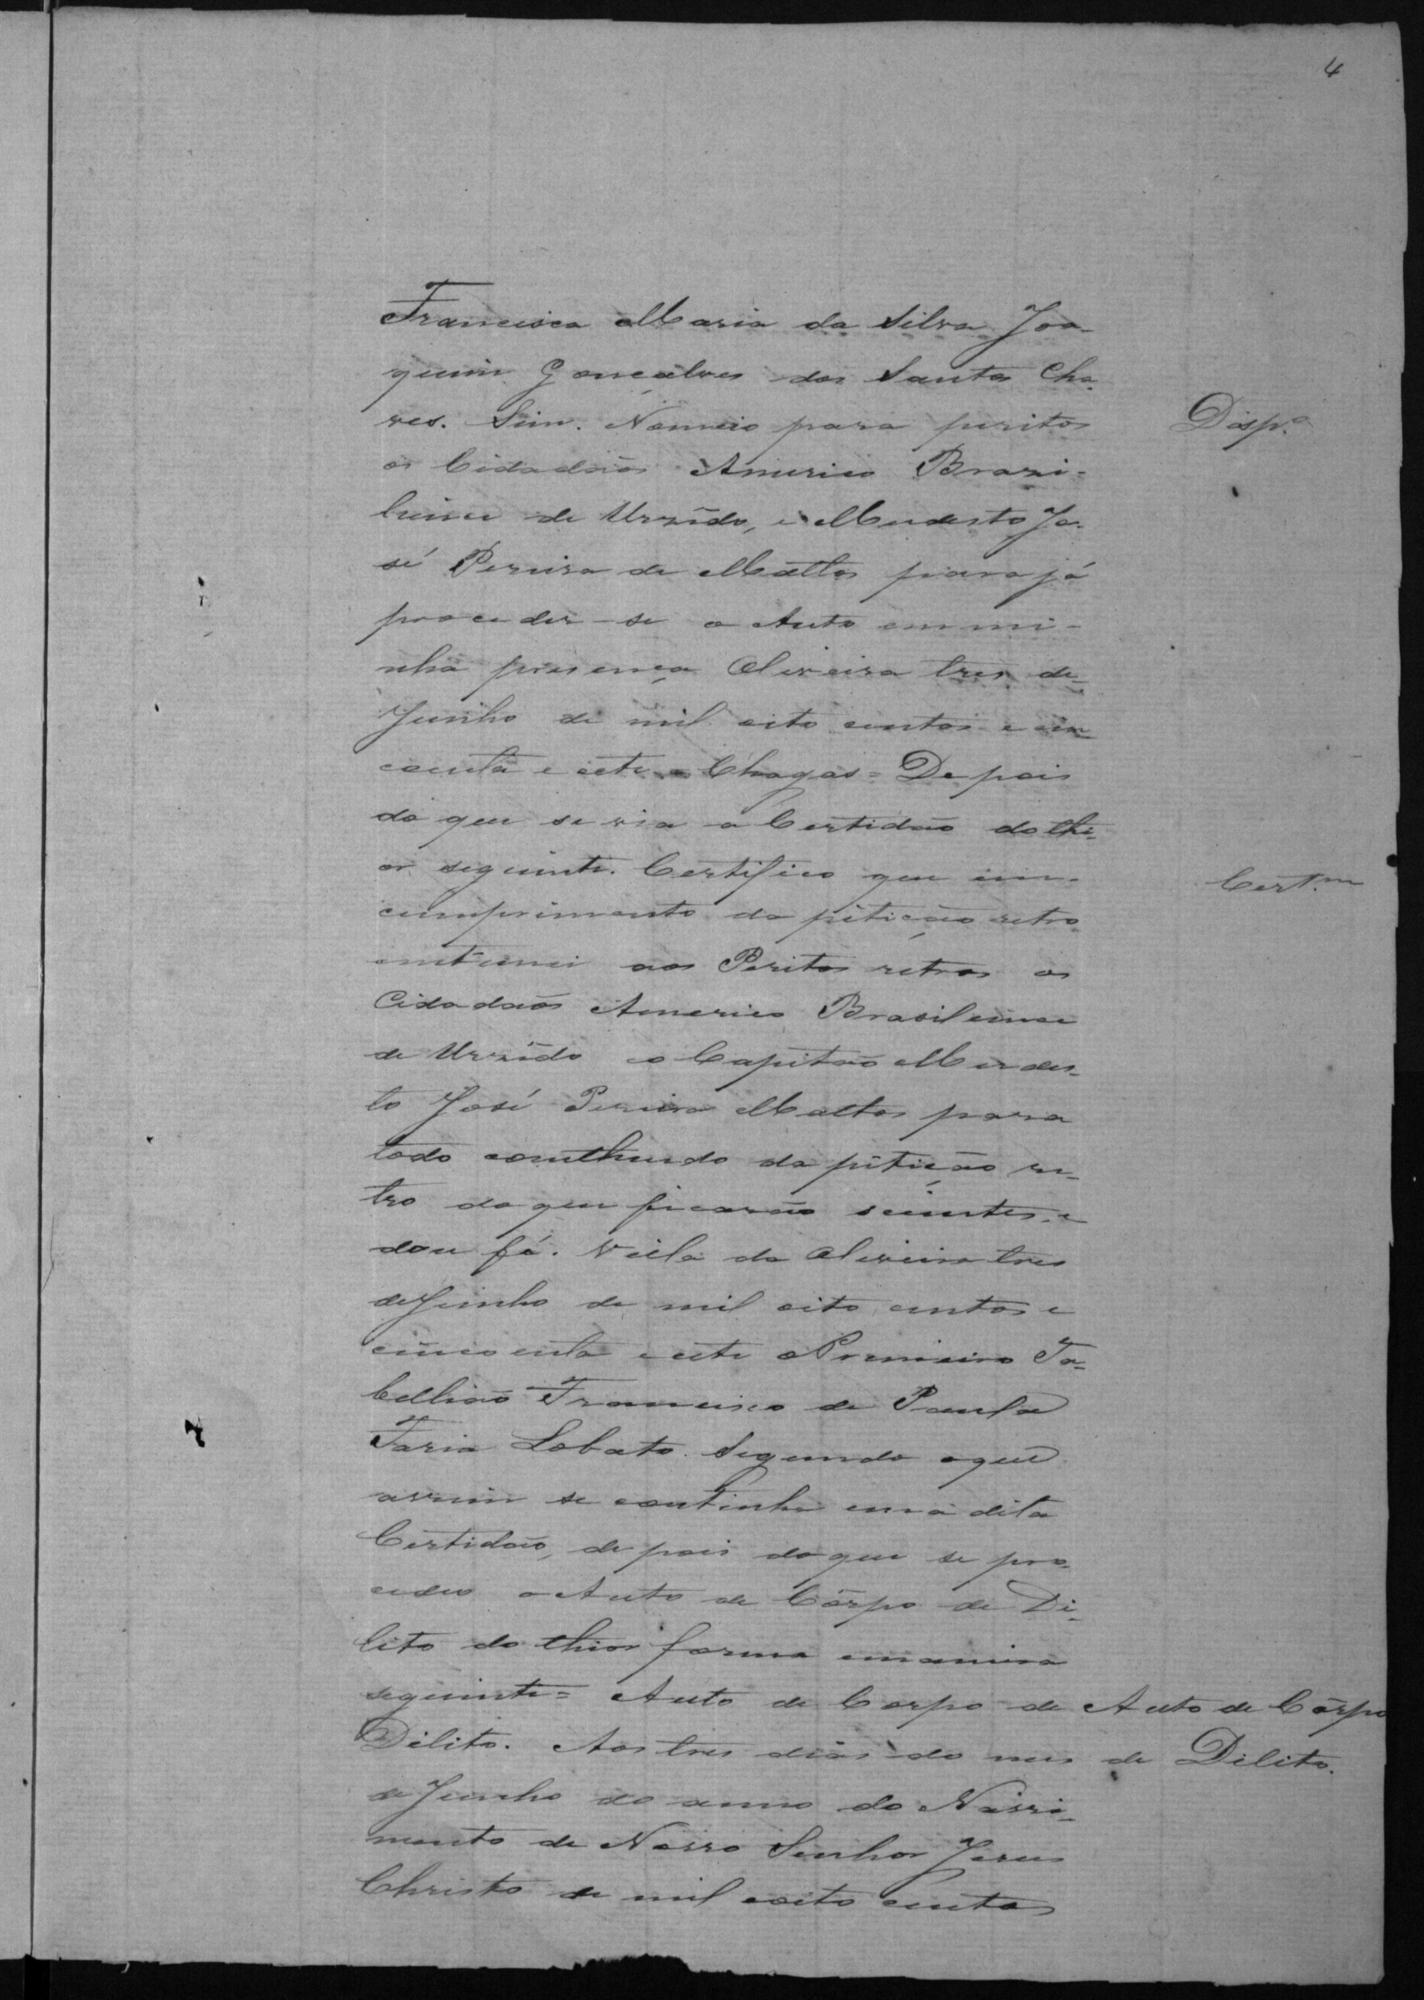 4
Francisca Maria da Silva Joa-
quim Gonçalves dos Santos Cha-
ves. Sim. Nomeio para peritos
Desp.º
os Cidadaõs Americo Brazi-
liense de Urzêdo, e Mudesto Jo-
sé Pereira de Mattos para já
proceder-se o Auto em mi-
nha presença Oliveira tres de
Junho de mil oito centos e cin
coenta e cete = Chagas = Depois
do que se via a Certidão do the-
or seguinte. Certifico que em
Cert.m
cumprimento da pitição retro
aos Peritos retros os
Cidadaõs Americo Brasiliense
de Urzêdo e o Capitão Mudes-
to José Pereira Mattos para
todo comtheudo da pitição re-
tro do que ficarão scientes e
dou fé. Villa da Oliveira tres
de Junho de mil oito centos e
cincoenta e cete o Primeiro Ta-
bellião Francisco de Paula
Faria Lobato. Segundo o que
assim se continha em a dita
Certidão, depois do que se pro-
cedeo o Auto de Côrpo de De-
lito do thior forma emaneira
seguinte = Auto de Corpo de
Auto de Côrpo
Dilito. Aos tres dias do mes
de Dilito.
de Junho do anno do Nassi-
mento de Nosso Senhor Jesus
Christo de mil oito centos